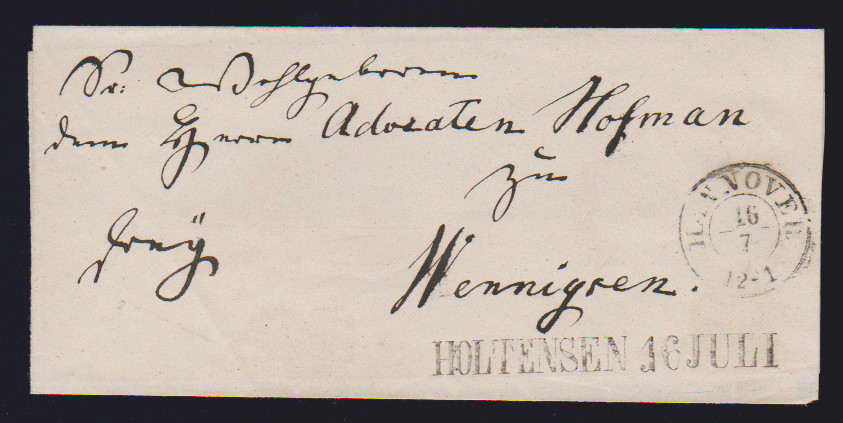 Sr: Wohlgeboren
dem Herrn Advocaten Hofman
zu
frey
Wennigsen.
HANNOVER
16
7
12-1
HOLTENSEN 16 JULI